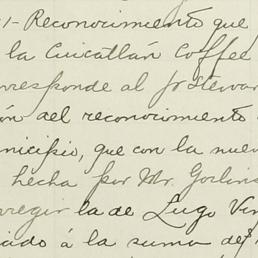 1- Reconocimiento que
la Cuicatlán Coffee
corresponde al Jr Stewar
ón del reconocimiento
nicipio, que con la nuev
hecha por Mr. Goslins
regir la de Lugo Vin
iado á la suma de $